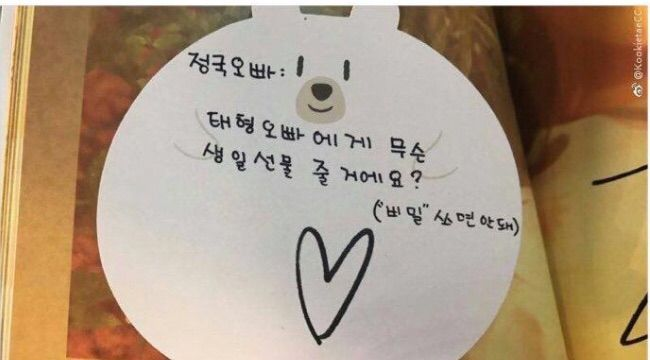 정국오빠:
태형오빠에게 무슨
생일선물 줄 거에요?
("비밀" 쓰면안돼)
@KookietaeCC